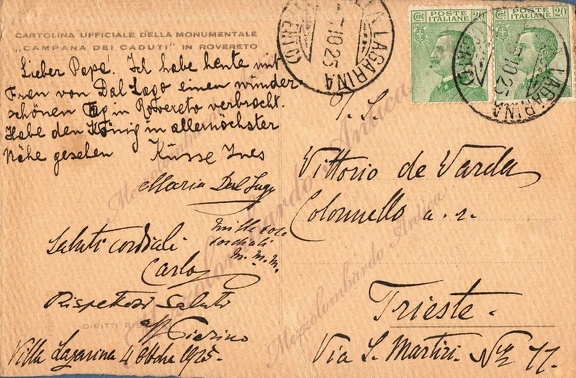 CARTOLINA UFFICIALE DELLA MONUMENTALE
"CAMPANA DEI CADUTI" IN ROVERETO
Lieber Pepe. Ich habe heute mit
Frau von Dal Lago einen wunder-
schönen Tag in Rovereto verbracht.
Habe den König in allernächster
Nähe gesehen Küsse Ines
Maria Dal Lago
cordiali
Saluti cordiali
Carlo
Rispettosi Saluti
Pierino
Villa Lagarina 4 Ottobre 1925
DIRITTI
LAGARINA
10 25
POSTE ITALIANE 20
POSTE ITALIANE 20
LAGARINA
10 25
Vittorio de Varda
Colonnello a. r.
Trieste.
Via S. Martiri No 11
Mezzolombardo Antica
Mezzolombardo Antica